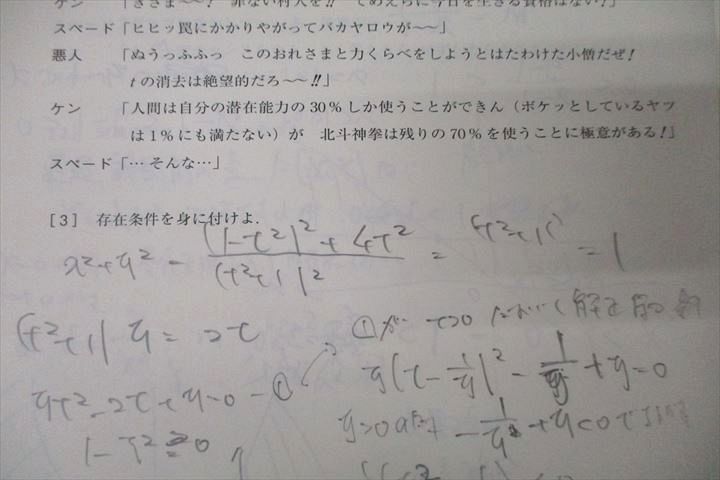 ケン 「きさま〜〜! 罪ない村人を!! てめえらに今日を生きる資格はない!」
スペード「ヒヒッ罠にかかりやがってバカヤロウが〜〜」
悪人 「ぬうっふふっ このおれさまと力くらべをしようとはたわけた小僧だぜ!
tの消去は絶望的だろ〜〜!!」
ケン 「人間は自分の潜在能力の30%しか使うことができん(ボケッとしているヤツ
は1%にも満たない)が 北斗神拳は残りの70%を使うことに極意がある!」
スペード「…そんな…」
[3] 存在条件を身に付けよ.
x²+y² = ((1-t²)²+4t²)/(t²+1)² = (t²+1)² = 1
(t²+1)y = 2t ①が t>0 において解を
yt²-2t+y=0 -① y(t-1/y)²-1/y+y=0
1-t²≧0 y>0の時 -1/y+y<0で